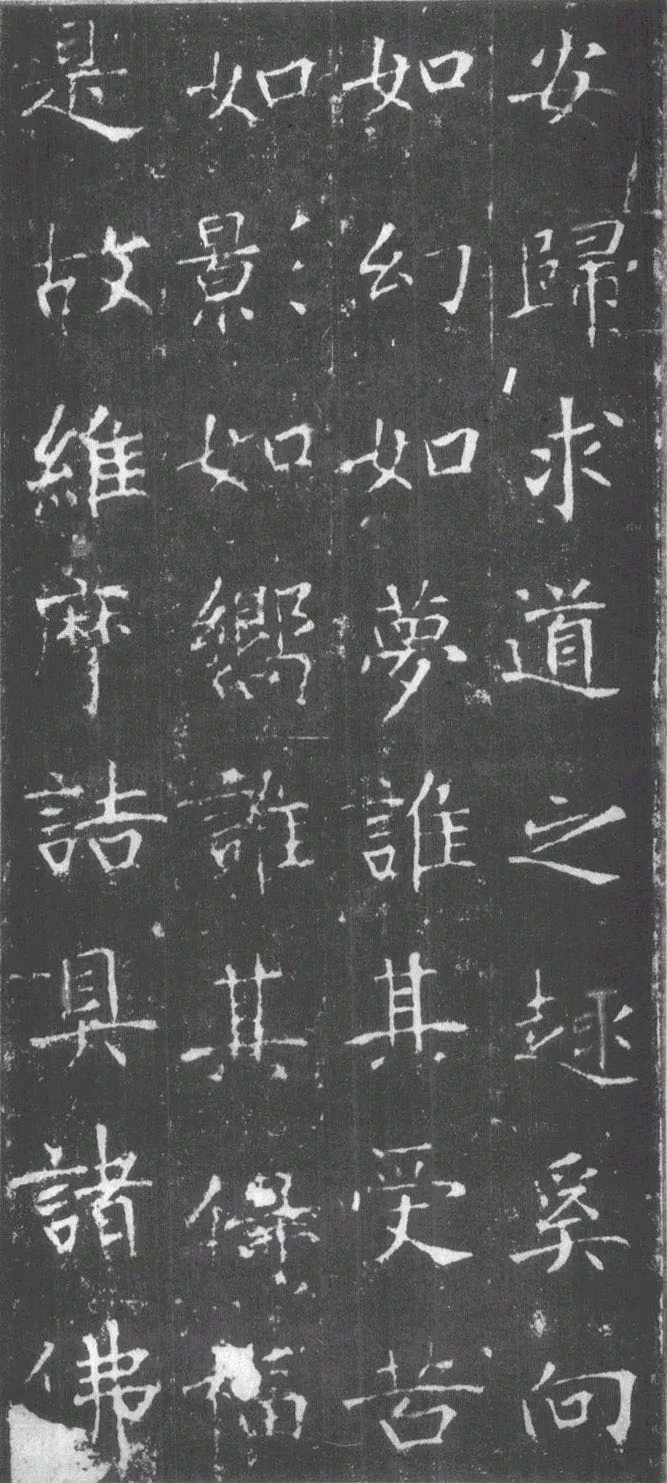 安歸求道之趣奚向
如幻如夢誰其受苦
如影如嚮誰其保福
是故維摩詰具諸佛